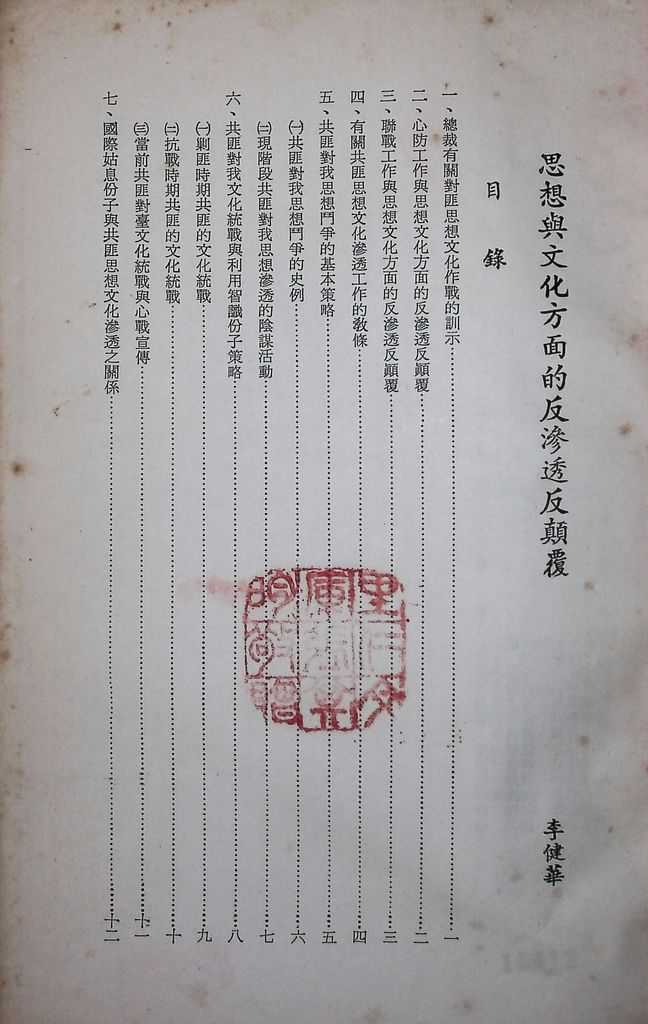 思想與文化方面的反滲透反顛覆
李健華
目錄
一、總裁有關對匪思想文化作戰的訓示……一
二、心防工作與思想文化方面的反滲透反顚覆……二
三、聯戰工作與思想文化方面的反滲透反顚覆……三
四、有關共匪思想文化滲透工作的敎條……四
五、共匪對我思想鬥爭的基本策略……五
㈠共匪對我思想鬥爭的史例……六
㈡現階段共匪對我思想滲透的陰謀活動……七
六、共匪對我文化統戰與利用智識份子策略……八
㈠剿匪時期共匪的文化統戰……九
㈡抗戰時期共匪的文化統戰……十
㈢當前共匪對臺文化統戰與心戰宣傳……十一
七、國際姑息份子與共匪思想文化滲透之關係……十二